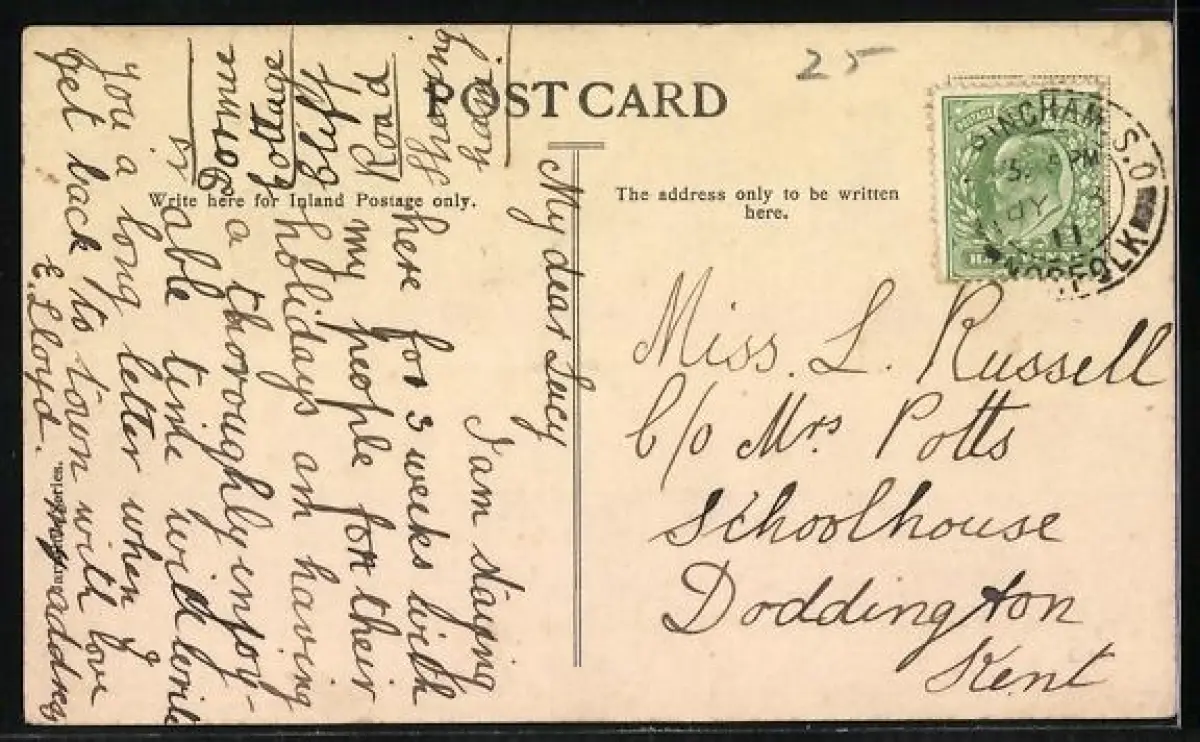 POST CARD
25
Write here for Inland Postage only.
The address only to be written
here.
INGHAM S.O
5 PM
JY
11
NORFOLK
My dear Lucy
I am staying
here for 3 weeks with
my people for their
holidays am having
a thoroughly injoy-
able time will write
you a long letter when I
get back to town with love
E. Lloyd.
my address
is
Bourne
Cottage
Road
Miss. L. Russell
C/o Mrs Potts
Schoolhouse
Doddington
Kent